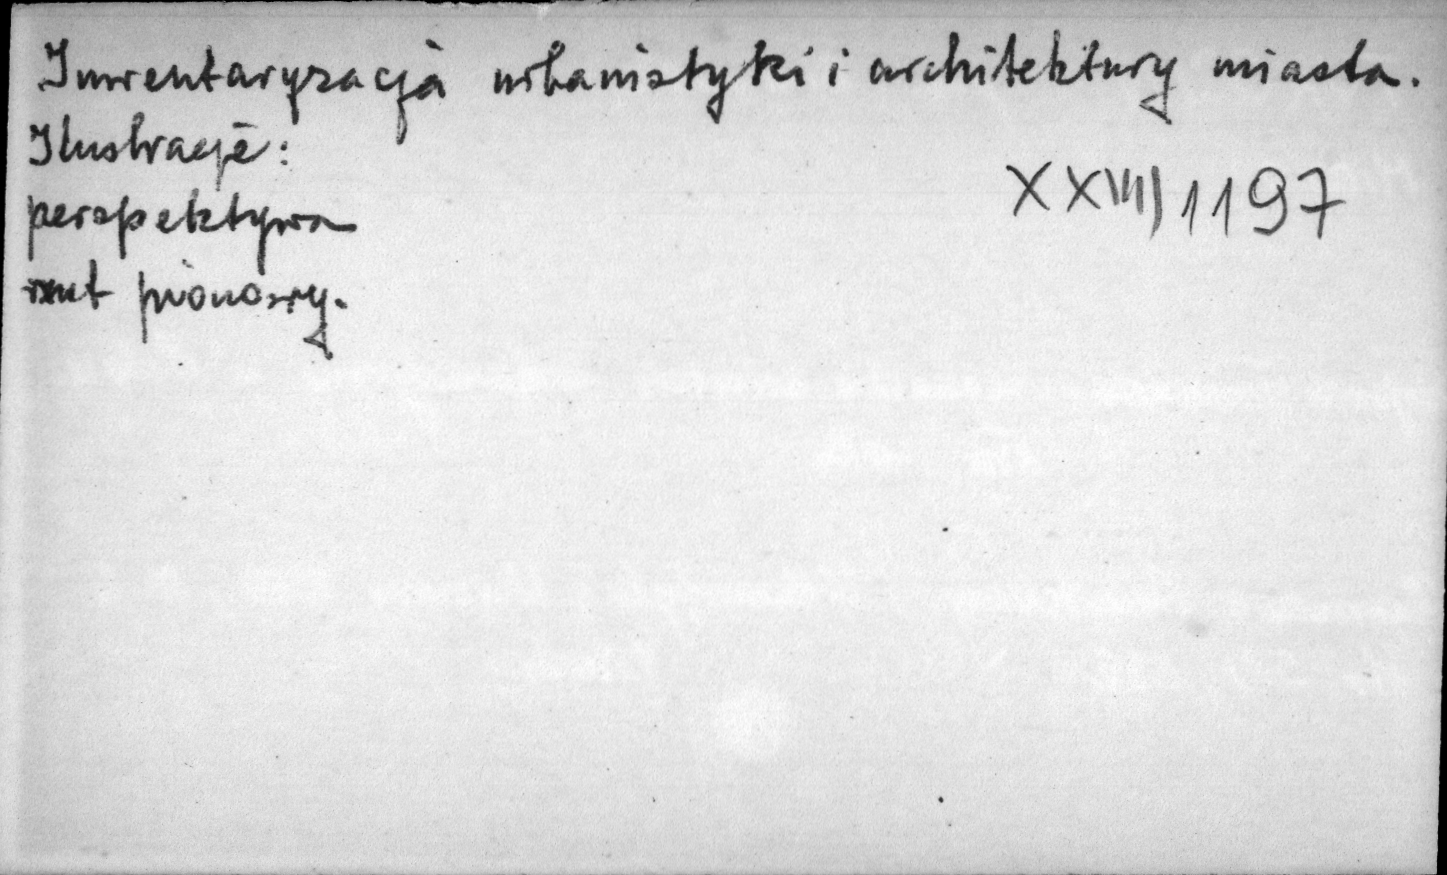 Inwentaryzacja urbanistyki i architektury miasta.
Ilustracje:
XXVIII 1197
perspektywa
rzut pionowy.